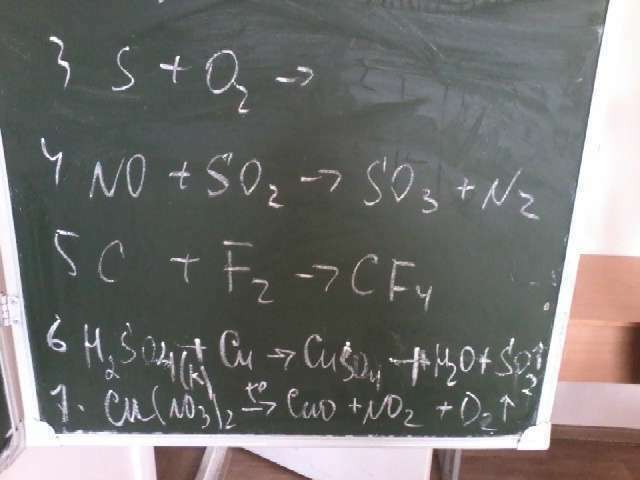 3 S + O₂ →
4 NO + SO₂ → SO₃ + N₂
5 C + F₂ → CF₄
6 H₂SO₄(к) + Cu → CuSO₄ + H₂O + SO₂↑
7. Cu(NO₃)₂ →t° CuO + NO₂ + O₂↑